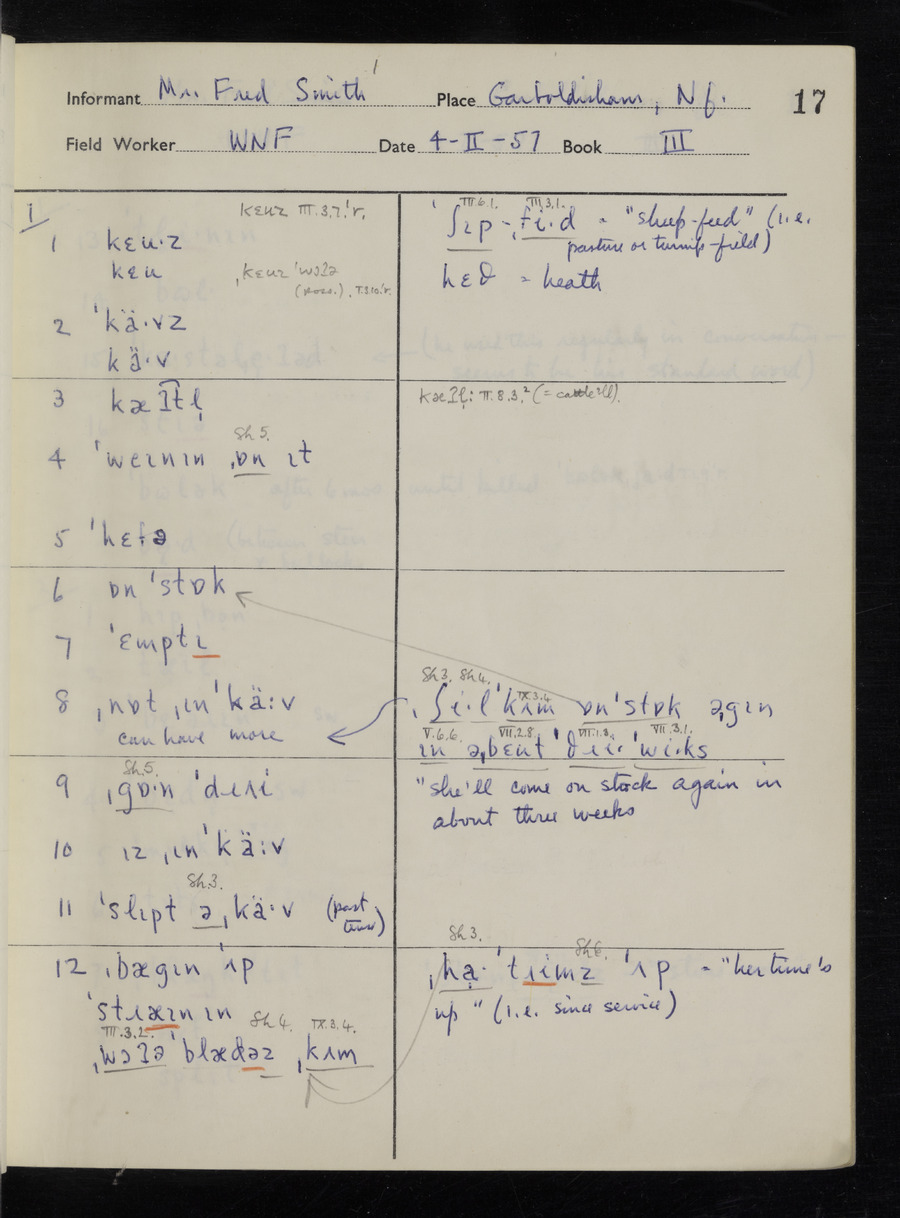 Informant Mr. Fred Smith Place Garboldisham, Nf. 17
Field Worker WNF Date 4-II-57 Book III
I
kɛuz III.3.7.'r.
1 kɛu·z
kɛu
ˌkɛuz 'wɔʔə
(poss.), V.3.10.'r.
2 'kä·vz
kä·v
3 kæʔtl̩
4 'wɛɪnɪn ˌɒn ɪt
Sh 5.
5 'hɛfə
6 ɒn 'stɒk
7 'ɛmptɪ
8 ˌnɒt ˌɪn 'kä:v
can have more
9 ˌgɒ·n 'dɹʌi
Sh.5.
10 ɪz ˌɪn 'kä:v
11 'slɪpt ə ˌkä·v (past
tense)
Sh.3.
12 ˌbægɪn 'ʌp
'stɹæɪnɪn
III.3.2. Sh.4. IX.3.4.
ˌwɔʔə 'blædəz ˌkʌm
III.6.1. III.3.1.
'ʃɪp-ˌfi·d = "sheep-feed" (i.e.
pasture or turnip-field)
hɛθ = heath
kæʔl̩: II.8.3,² (= cattle-ill).
Sh.3. Sh.4. IX.3.4.
ˌʃi·l 'kʌm ɒn 'stɒk əgɪn
V.6.6. VII.2.8. VII.1.3. VII.3.1.
ɪn əˌbɛut 'θɹi· 'wi·ks
"she'll come on stock again in
about three weeks
Sh 3. Sh 6.
ˌhə· 'tʌimz 'ʌp = "her time's
up" (i.e. since service)